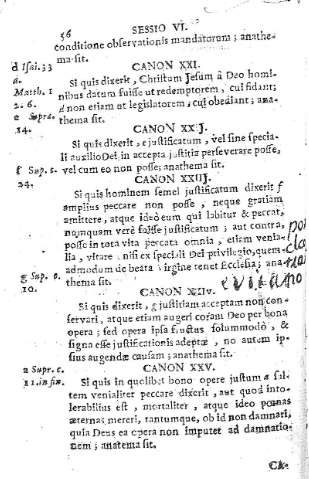 56 SESSIO VI.
conditione observationis mandatorum; anathe-
ma sit.
CANON XXI.
d Isai. 33
Si quis dixerit, Christum Jesum à Deo homi-
Matth. 1
nibus datum fuisse ut redemptorem, cui fidant;
2. 6.
d non etiam ut legislatorem, cui obediant; ana-
e Supra.
14.
thema sit.
CANON XXIJ.
Si quis dixerit, e justificatum, vel sine specia-
li auxilio Dei in accepta justitia perseverare posse,
f Sup. c.
vel cum eo non posse; anathema sit.
24.
CANON XXIIJ.
Si quis hominem semel justificatum dixerit f
amplius peccare non posse, neque gratiam
amittere, atque ideò eum qui labitur & peccat,
nunquam verè fuisse justificatum; aut contra,
posse in tota vita peccata omnia, etiam venia-
lia, vitare, nisi ex speciali Dei privilegio, quem-
admodum de beata Virgine tenet Ecclesia; ana-
g Sup. c.
thema sit.
10.
CANON XXIIv.
Si quis dixerit, g justitiam acceptam non con-
servari, atque etiam augeri coram Deo per bona
opera; sed opera ipsa fructus solummodò, &
signa esse justificationis adeptæ, no autem ip-
sius augendæ causam; anathema sit.
2 Supr. c.
CANON XXV.
11. in fin.
Si quis in quolibet bono opere justum a sal-
tem venialiter peccare dixerit, aut quod into-
lerabilius est, mortaliter, atque ideo pœnas
æternas mereri, tantumque, ob id non damnari,
quia Deus ea opera non imputet ad damnatio-
nem; anatema sit.
Ca-